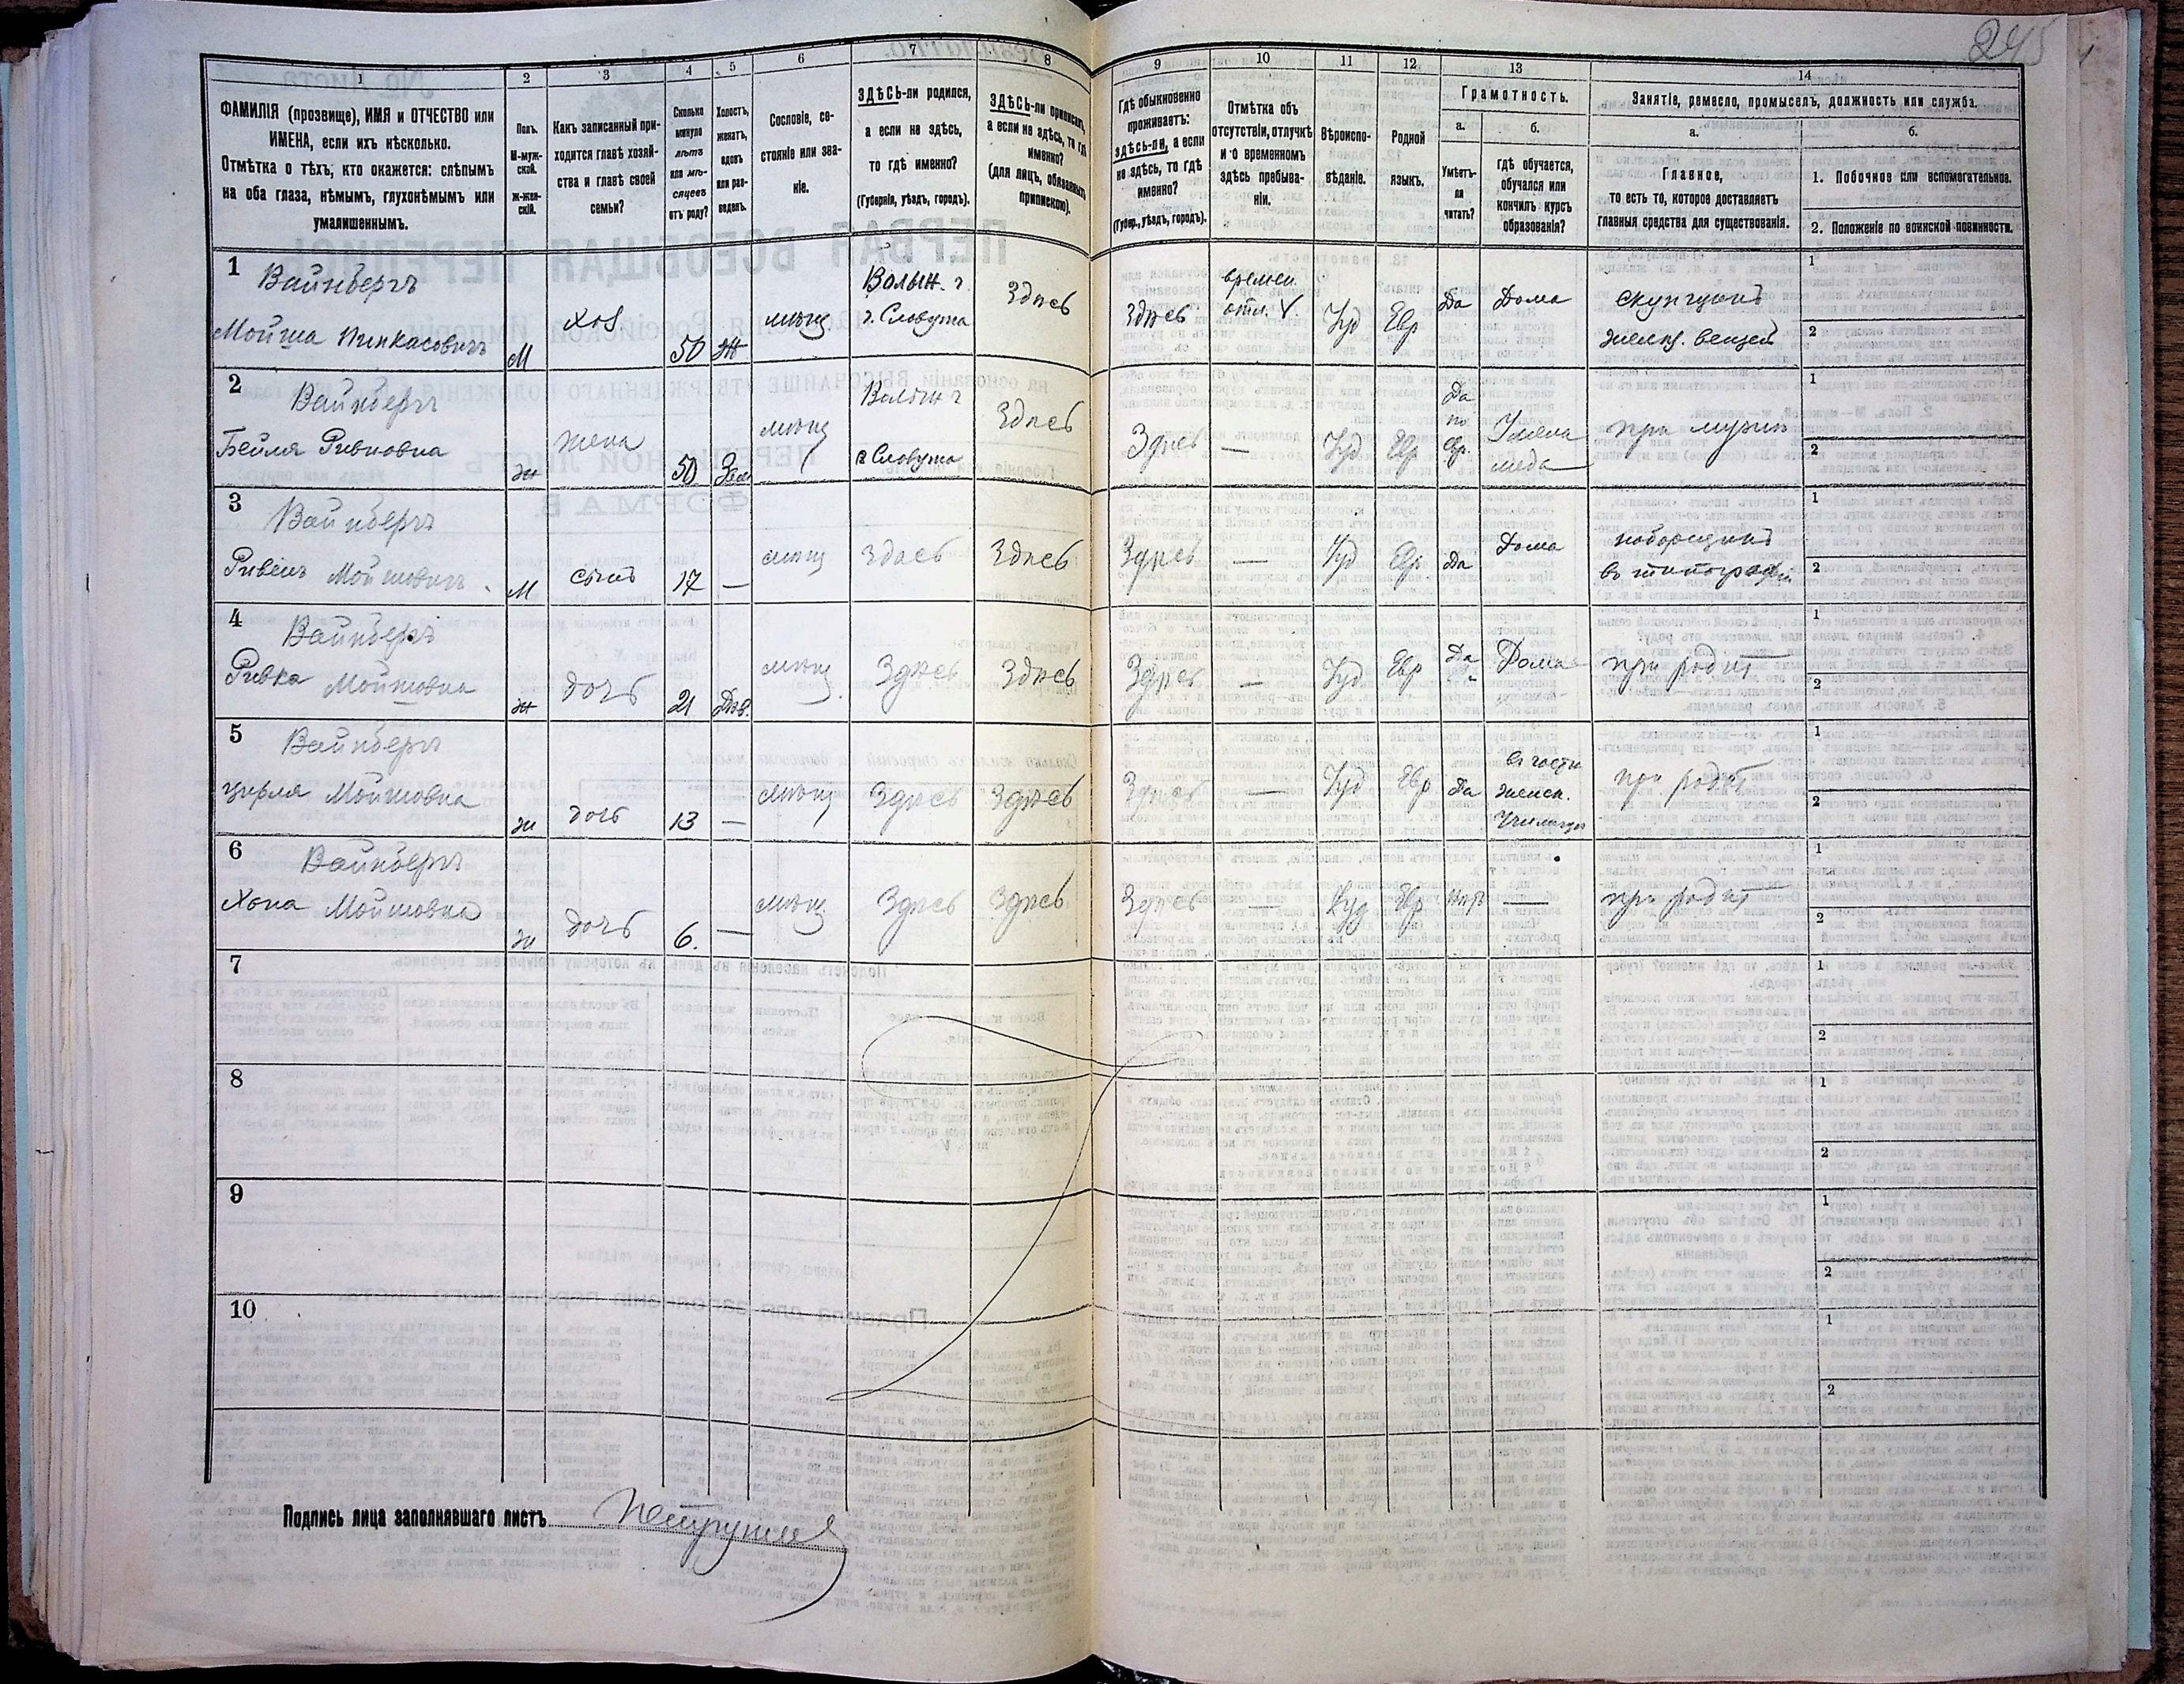 245
1 2 3 4 5 6 7 8 9 10 11 12 13 14
ФАМИЛІЯ (прозвище), ИМЯ и ОТЧЕСТВО или
ИМЕНА, если ихъ нѣсколько.
Отмѣтка о тѣхъ, кто окажется: слѣпымъ
на оба глаза, нѣмымъ, глухонѣмымъ или
умалишеннымъ.
Полъ.
М-муж-
ской.
Ж-жен-
скій.
Какъ записанный при-
ходится главѣ хозяй-
ства и главѣ своей
семьи?
Сколько
минуло
лѣтъ
или мѣ-
сяцевъ
отъ роду?
Холостъ,
женатъ,
вдовъ
или раз-
веденъ.
Сословіе, со-
стояніе или зва-
ніе.
ЗДѢСЬ-ли родился,
а если не здѣсь,
то гдѣ именно?
(Губернія, уѣздъ, городъ).
ЗДѢСЬ-ли приписанъ,
а если не здѣсь, то гдѣ
именно?
(для лицъ, обязанныхъ
припискою).
Гдѣ обыкновенно
проживаетъ:
здѣсь-ли, а если
не здѣсь, то гдѣ
именно?
(Губер., уѣздъ, городъ).
Отмѣтка объ
отсутствіи, отлучкѣ
и о временномъ
здѣсь пребыва-
ніи.
Вѣроиспо-
вѣданіе.
Родной
языкъ.
Грамотность.
а.
Умѣетъ-
ли
читать?
б.
гдѣ обучается,
обучался или
кончилъ курсъ
образованія?
Занятіе, ремесло, промыселъ, должность или служба.
а.
Главное,
то есть то, которое доставляетъ
главныя средства для существованія.
б.
1. Побочное или вспомогательное.
2. Положеніе по воинской повинности.
1 Вайнбергъ
Мойша Пинкасовичъ
М
хоз
50
Ж
мѣщ
Волын. г.
г. Славута
Здѣсь
Здѣсь
времен.
отл. V.
Іуд
Евр
Да
Дома
скупщикъ
1
2
2 Вайнбергъ
Бейля Ривновна
ж
жена
50
Зам
мѣщ
Волын г
г Славута
Здѣсь
Здѣсь
—
Іуд
Евр
Да
по
евр.
при мужѣ
1
2
3 Вайнбергъ
Ривенъ Мойшовичъ
М
сынъ
17
—
мѣщ
Здѣсь
Здѣсь
Здѣсь
—
Іуд
Евр
Да
Дома
наборщикъ
въ типографіи
1
2
4 Вайнбергъ
Ривка Мойшовна
ж
дочь
21
Дѣв.
мѣщ
Здѣсь
Здѣсь
Здѣсь
—
Іуд
Евр
Да
Дома
при родит
1
2
5 Вайнбергъ
Цирля Мойшовна
ж
дочь
13
—
мѣщ
Здѣсь
Здѣсь
Здѣсь
—
Іуд
Евр
Да
въ частн
женск.
училищѣ
при родит
1
2
6 Вайнбергъ
Хона Мойшовна
ж
дочь
6.
—
мѣщ.
Здѣсь
Здѣсь
Здѣсь
—
Іуд
Евр
Нѣтъ
—
при родит
1
2
7
1
2
8
1
2
9
1
2
10
1
2
Подпись лица заполнявшаго листъ